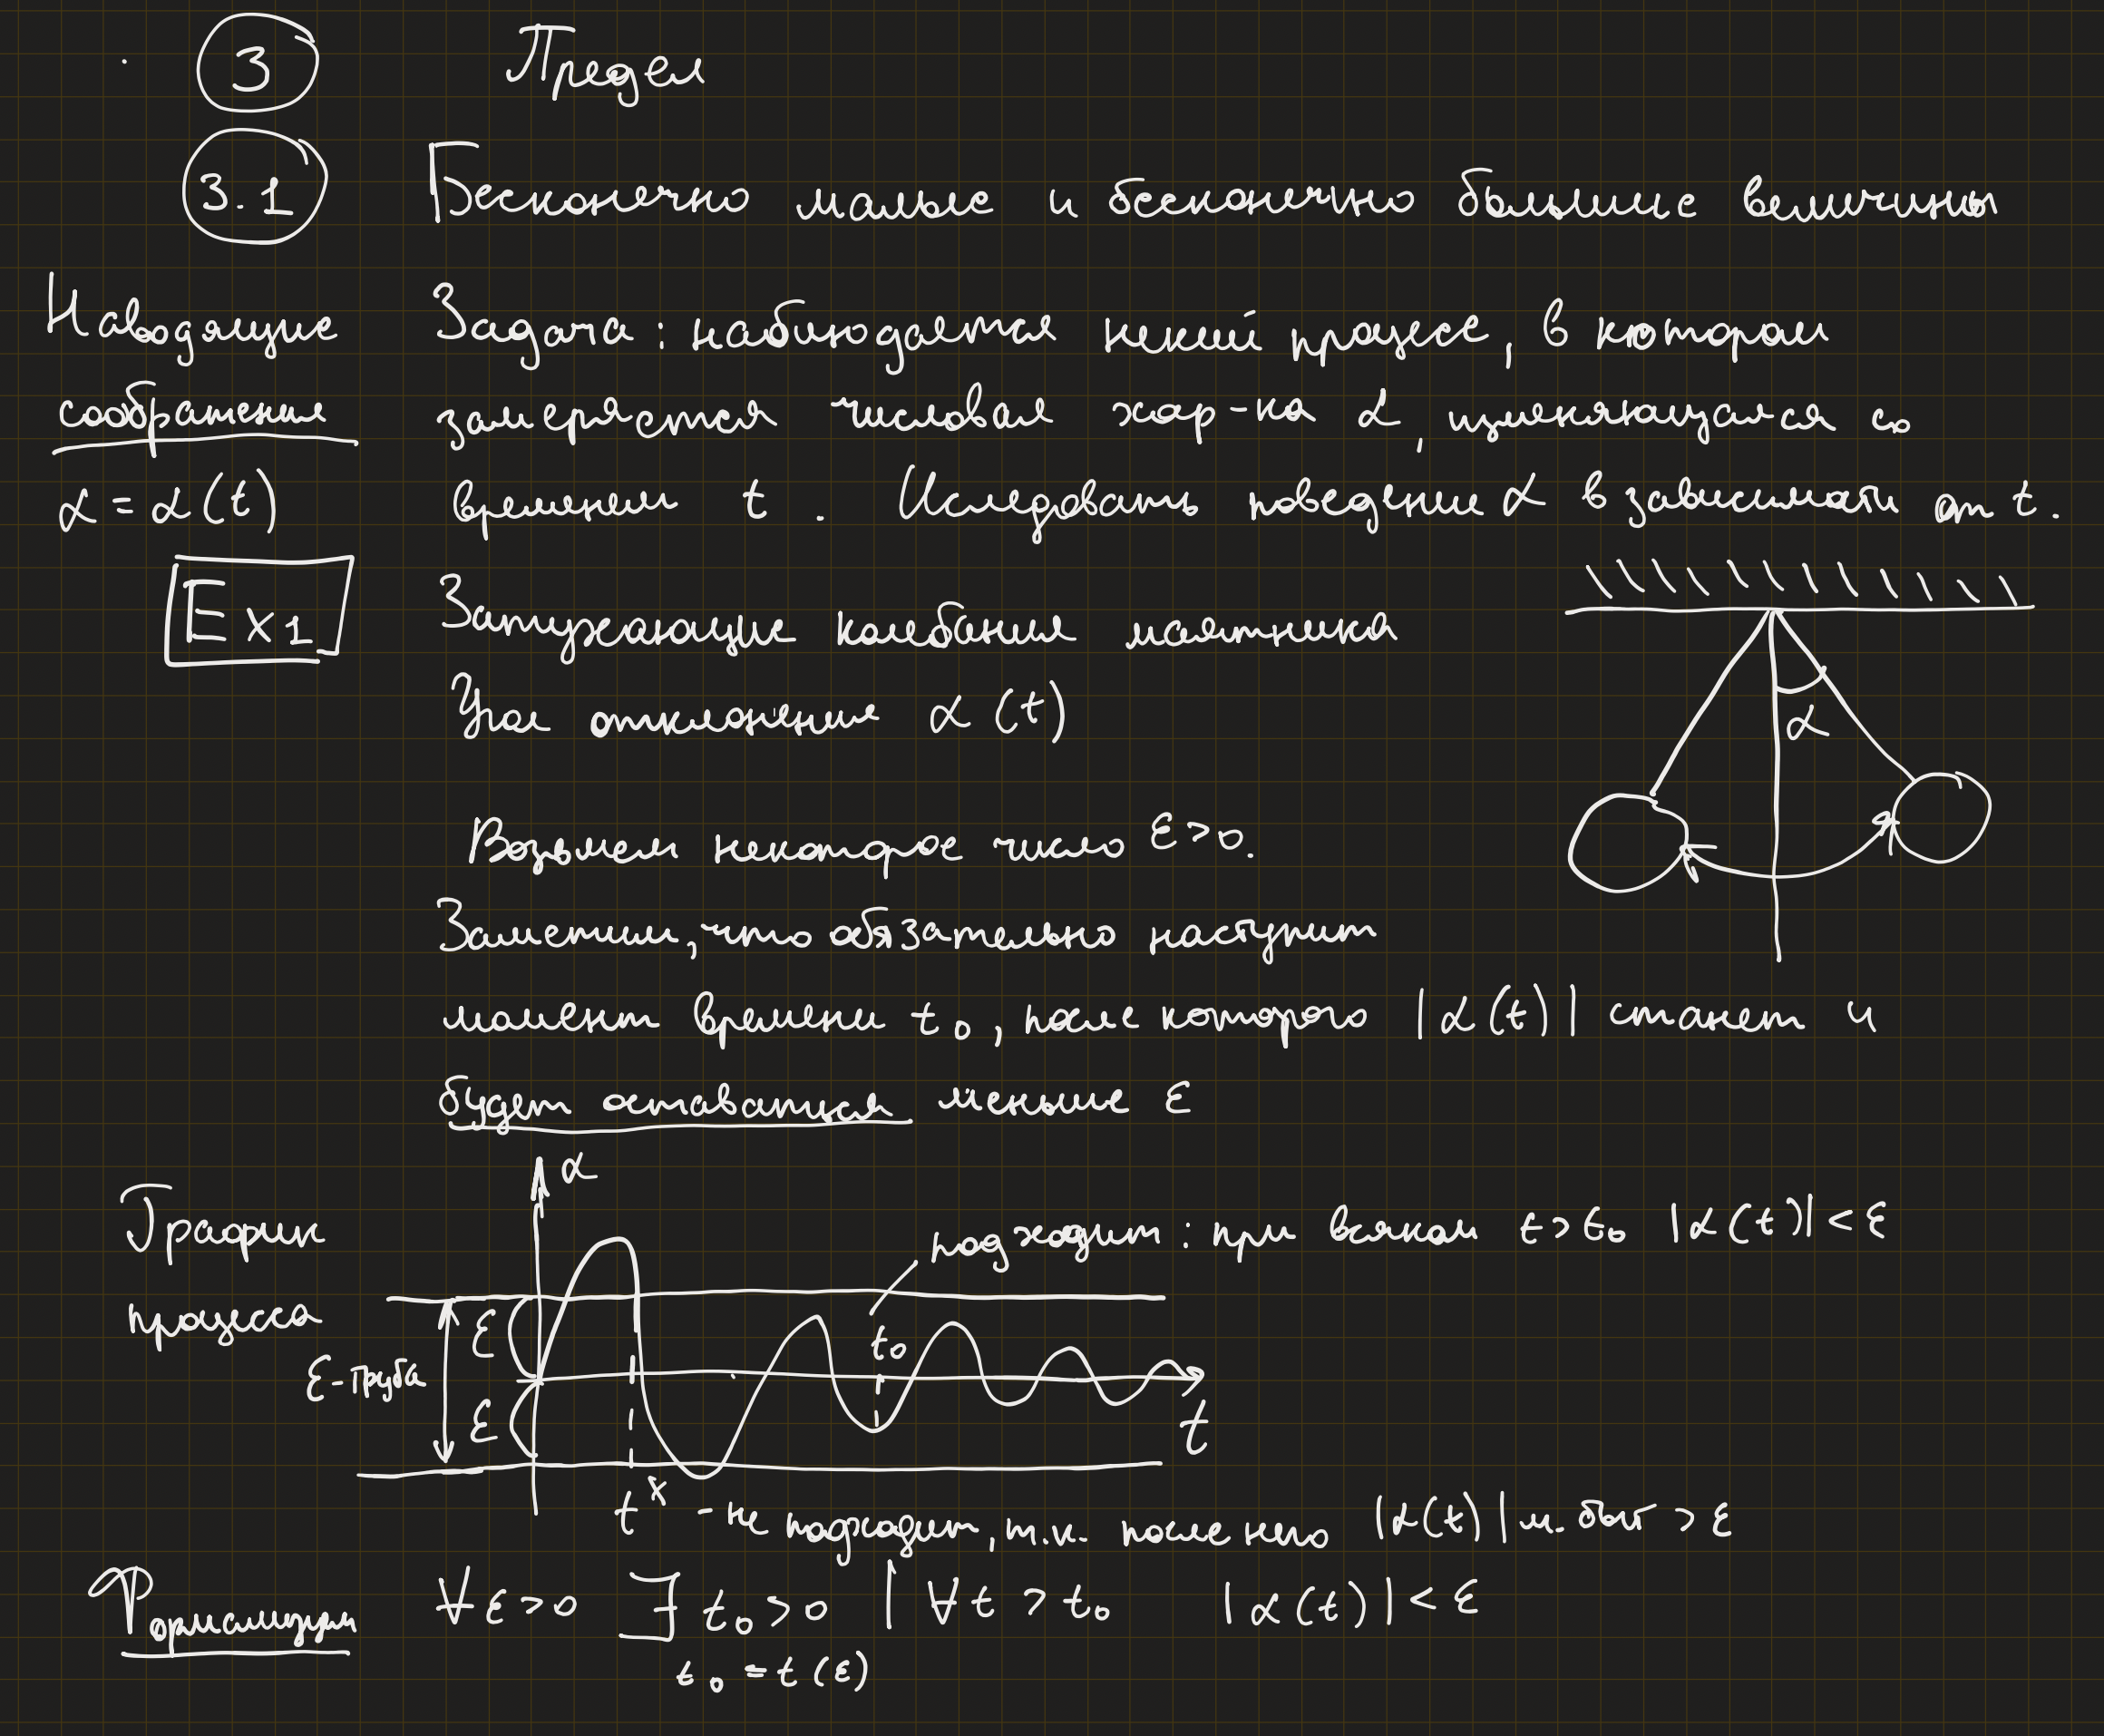 3 Предел
3.1 Бесконечно малые и бесконечно большие величины
Наводящие Задача: наблюдается некий процесс, в котором
соображения замеряется числовая хар-ка α, изменяющаяся со
α = α(t) временем t. Исследовать поведение α в зависимости от t.
Ex 1 Затухающие колебания маятника
Угол отклонения α(t)
α
Возьмем некоторое число ε>0.
Заметим, что обязательно наступит
момент времени t₀, после которого |α(t)| станет и
будет оставаться меньше ε
α
График подходит: при всяком t>t₀ |α(t)|<ε
процесса
ε t₀
ε-труба
ε t
t* - не подходит, т.к. после него |α(t)| м. быть > ε
Формализуем ∀ε>0 ∃ t₀>0 | ∀t>t₀ |α(t)|<ε
t₀ = t(ε)